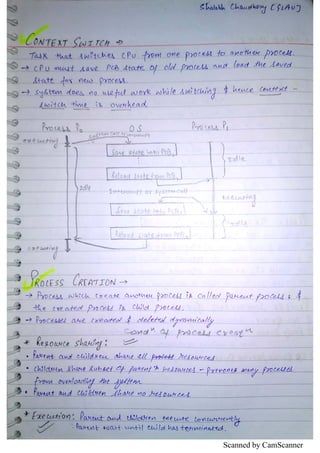 Shabbh Chaudhary [SLAU]
CONTEXT SWITCH →
Task that switches CPU from one process to another process.
→ CPU must save PCB state of old process and load the saved
state for new process.
→ System does no useful work while switching & hence context-
switch time is overhead.
Process P0 OS Process P1
executing
Save state into PCB0
Idle
Reload state from PCB1
Idle Interrupt or system call
executing
Save state into PCB1
Idle
Reload state from PCB0
executing
PROCESS CREATION →
→ Process which create another process is called parent process &
the created process is child process.
→ Processes are created & deleted dynamically
* RESOURCE Sharing:
• Parent and children share all resources
• Children share subset of parent's resources - prevents many processes
from overloading the system
• Parent and children share no resources
* Execution: Parent and children execute concurrently
Parent wait until child has terminated.
Scanned by CamScanner